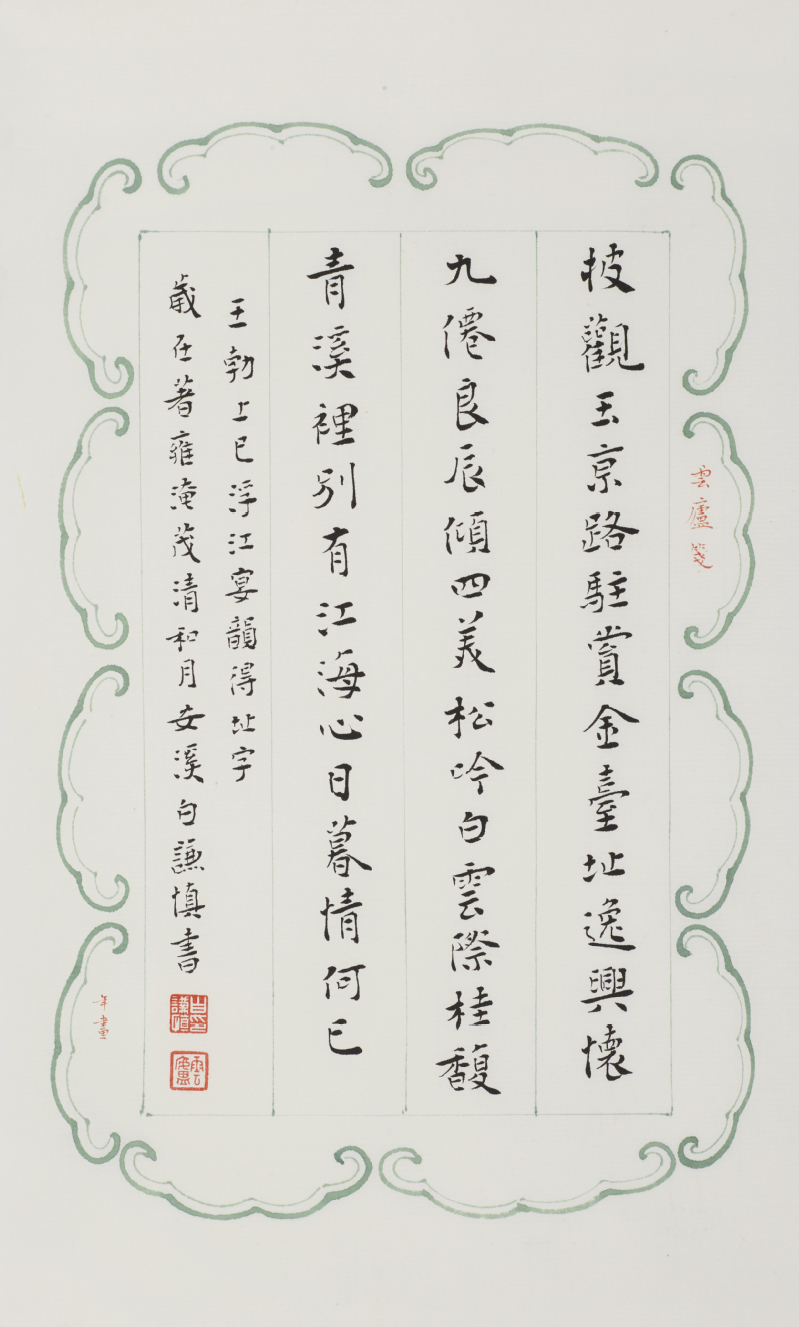 雲廬箋
披觀玉京路駐賞金臺址逸興懷
九僊良辰傾四美松吟白雲際桂馥
青溪裡別有江海心日暮情何已
王勃上巳浮江宴韻得址字
歲在著雍淹茂清和月安溪白謙慎書
白謙慎
雲廬
年畫